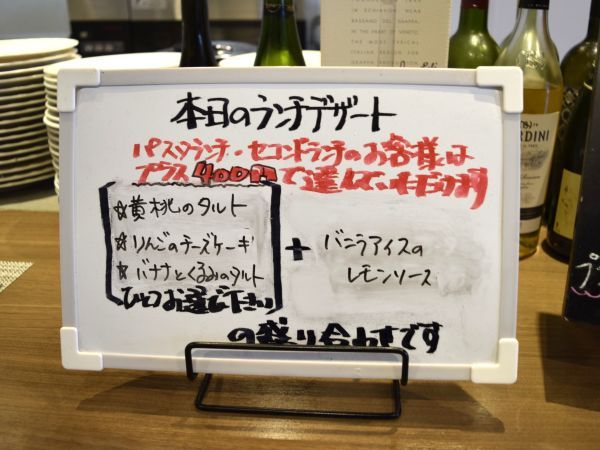 本日のランチデザート
パスタランチ・セコンドランチのお客様は
プラス400円で選んでいただけます
☆黄桃のタルト
☆りんごのチーズケーキ
☆バナナとくるみのタルト
ひとつお選び下さい
+
バニラアイスの
レモンソース
の盛り合わせです